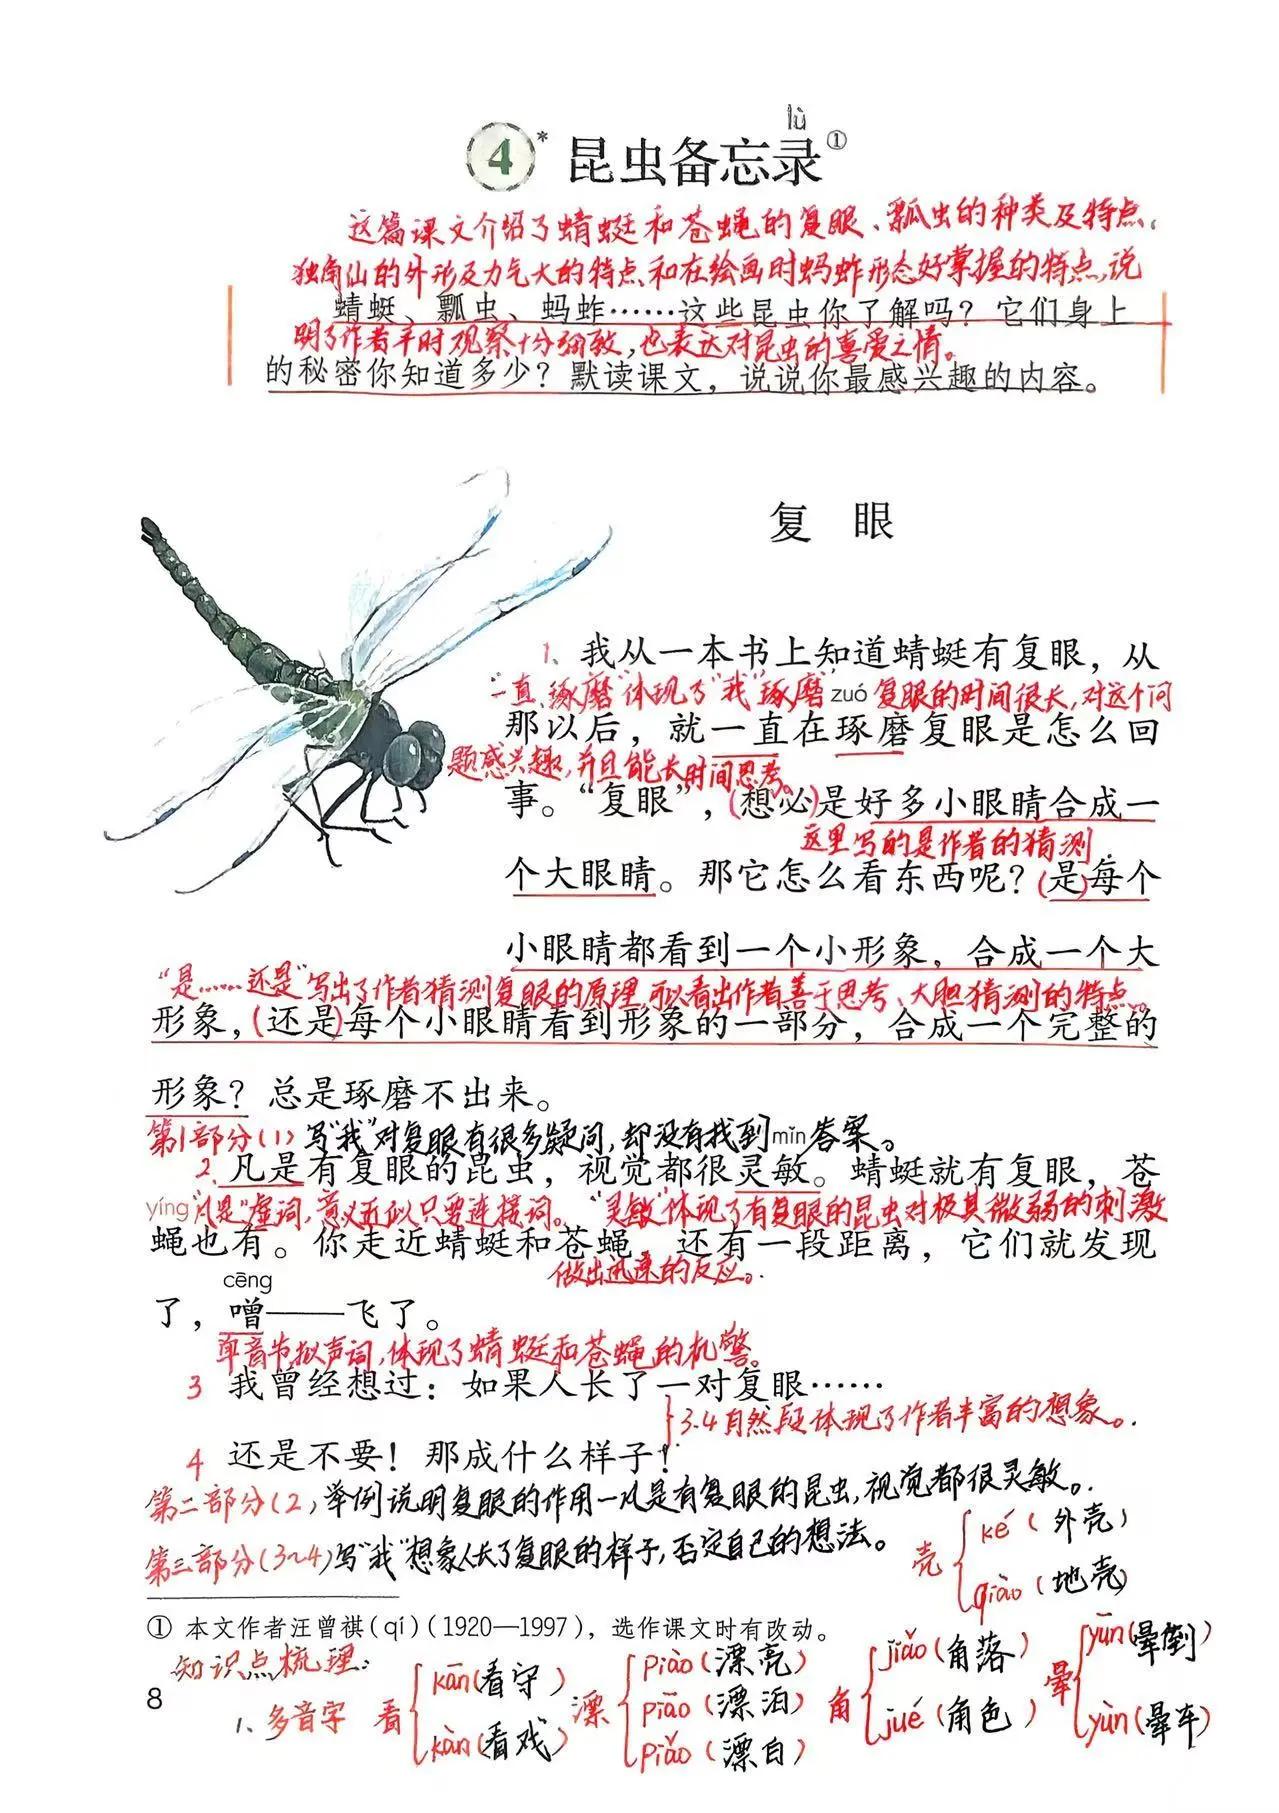 lù
4* 昆虫备忘录①
这篇课文介绍了蜻蜓和苍蝇的复眼、瓢虫的种类及特点、
独角仙的外形及力气大的特点和在绘画时蚂蚱形态好掌握的特点,说
蜻蜓、瓢虫、蚂蚱……这些昆虫你了解吗？它们身上
明了作者平时观察十分细致,也表达对昆虫的喜爱之情。
的秘密你知道多少？默读课文，说说你最感兴趣的内容。
复 眼
1、我从一本书上知道蜻蜓有复眼，从
"一直、琢磨"体现了"我"琢磨" zuó 复眼的时间很长,对这个问
那以后，就一直在琢磨复眼是怎么回
题感兴趣,并且能长时间思考。
事。“复眼”，(想必)是好多小眼睛合成一
这里写的是作者的猜测.
个大眼睛。那它怎么看东西呢？(是)每个
小眼睛都看到一个小形象，合成一个大
"是……还是"写出了作者猜测复眼的原理,可以看出作者善于思考、大胆猜测的特点。
形象，(还是)每个小眼睛看到形象的一部分，合成一个完整的
形象？总是琢磨不出来。
第1部分(1)写"我"对复眼有很多疑问,却没有找到 mǐn 答案。
2、凡是有复眼的昆虫，视觉都很灵敏。蜻蜓就有复眼，苍
yíng "凡是"虚词,意义近似只要连接词。"灵敏"体现了有复眼的昆虫对极其微弱的刺激
蝇也有。你走近蜻蜓和苍蝇，还有一段距离，它们就发现
做出迅速的反应。
cēng
了，噌——飞了。
单音节拟声词,体现了蜻蜓和苍蝇的机警。
3 我曾经想过：如果人长了一对复眼……
3.4自然段体现了作者丰富的想象。
4 还是不要！那成什么样子！
第二部分(2,举例说明复眼的作用—凡是有复眼的昆虫,视觉都很灵敏。
第三部分(3~4)写"我"想象人长了复眼的样子,否定自己的想法。
壳 ké(外壳)
qiào(地壳)
① 本文作者汪曾祺(qí)(1920—1997)，选作课文时有改动。
知识点梳理:
8
1、多音字 看 kān(看守) kàn(看戏)
漂 piào(漂亮) piāo(漂泊) piǎo(漂白)
角 jiǎo(角落) jué(角色)
晕 yūn(晕倒) yùn(晕车)